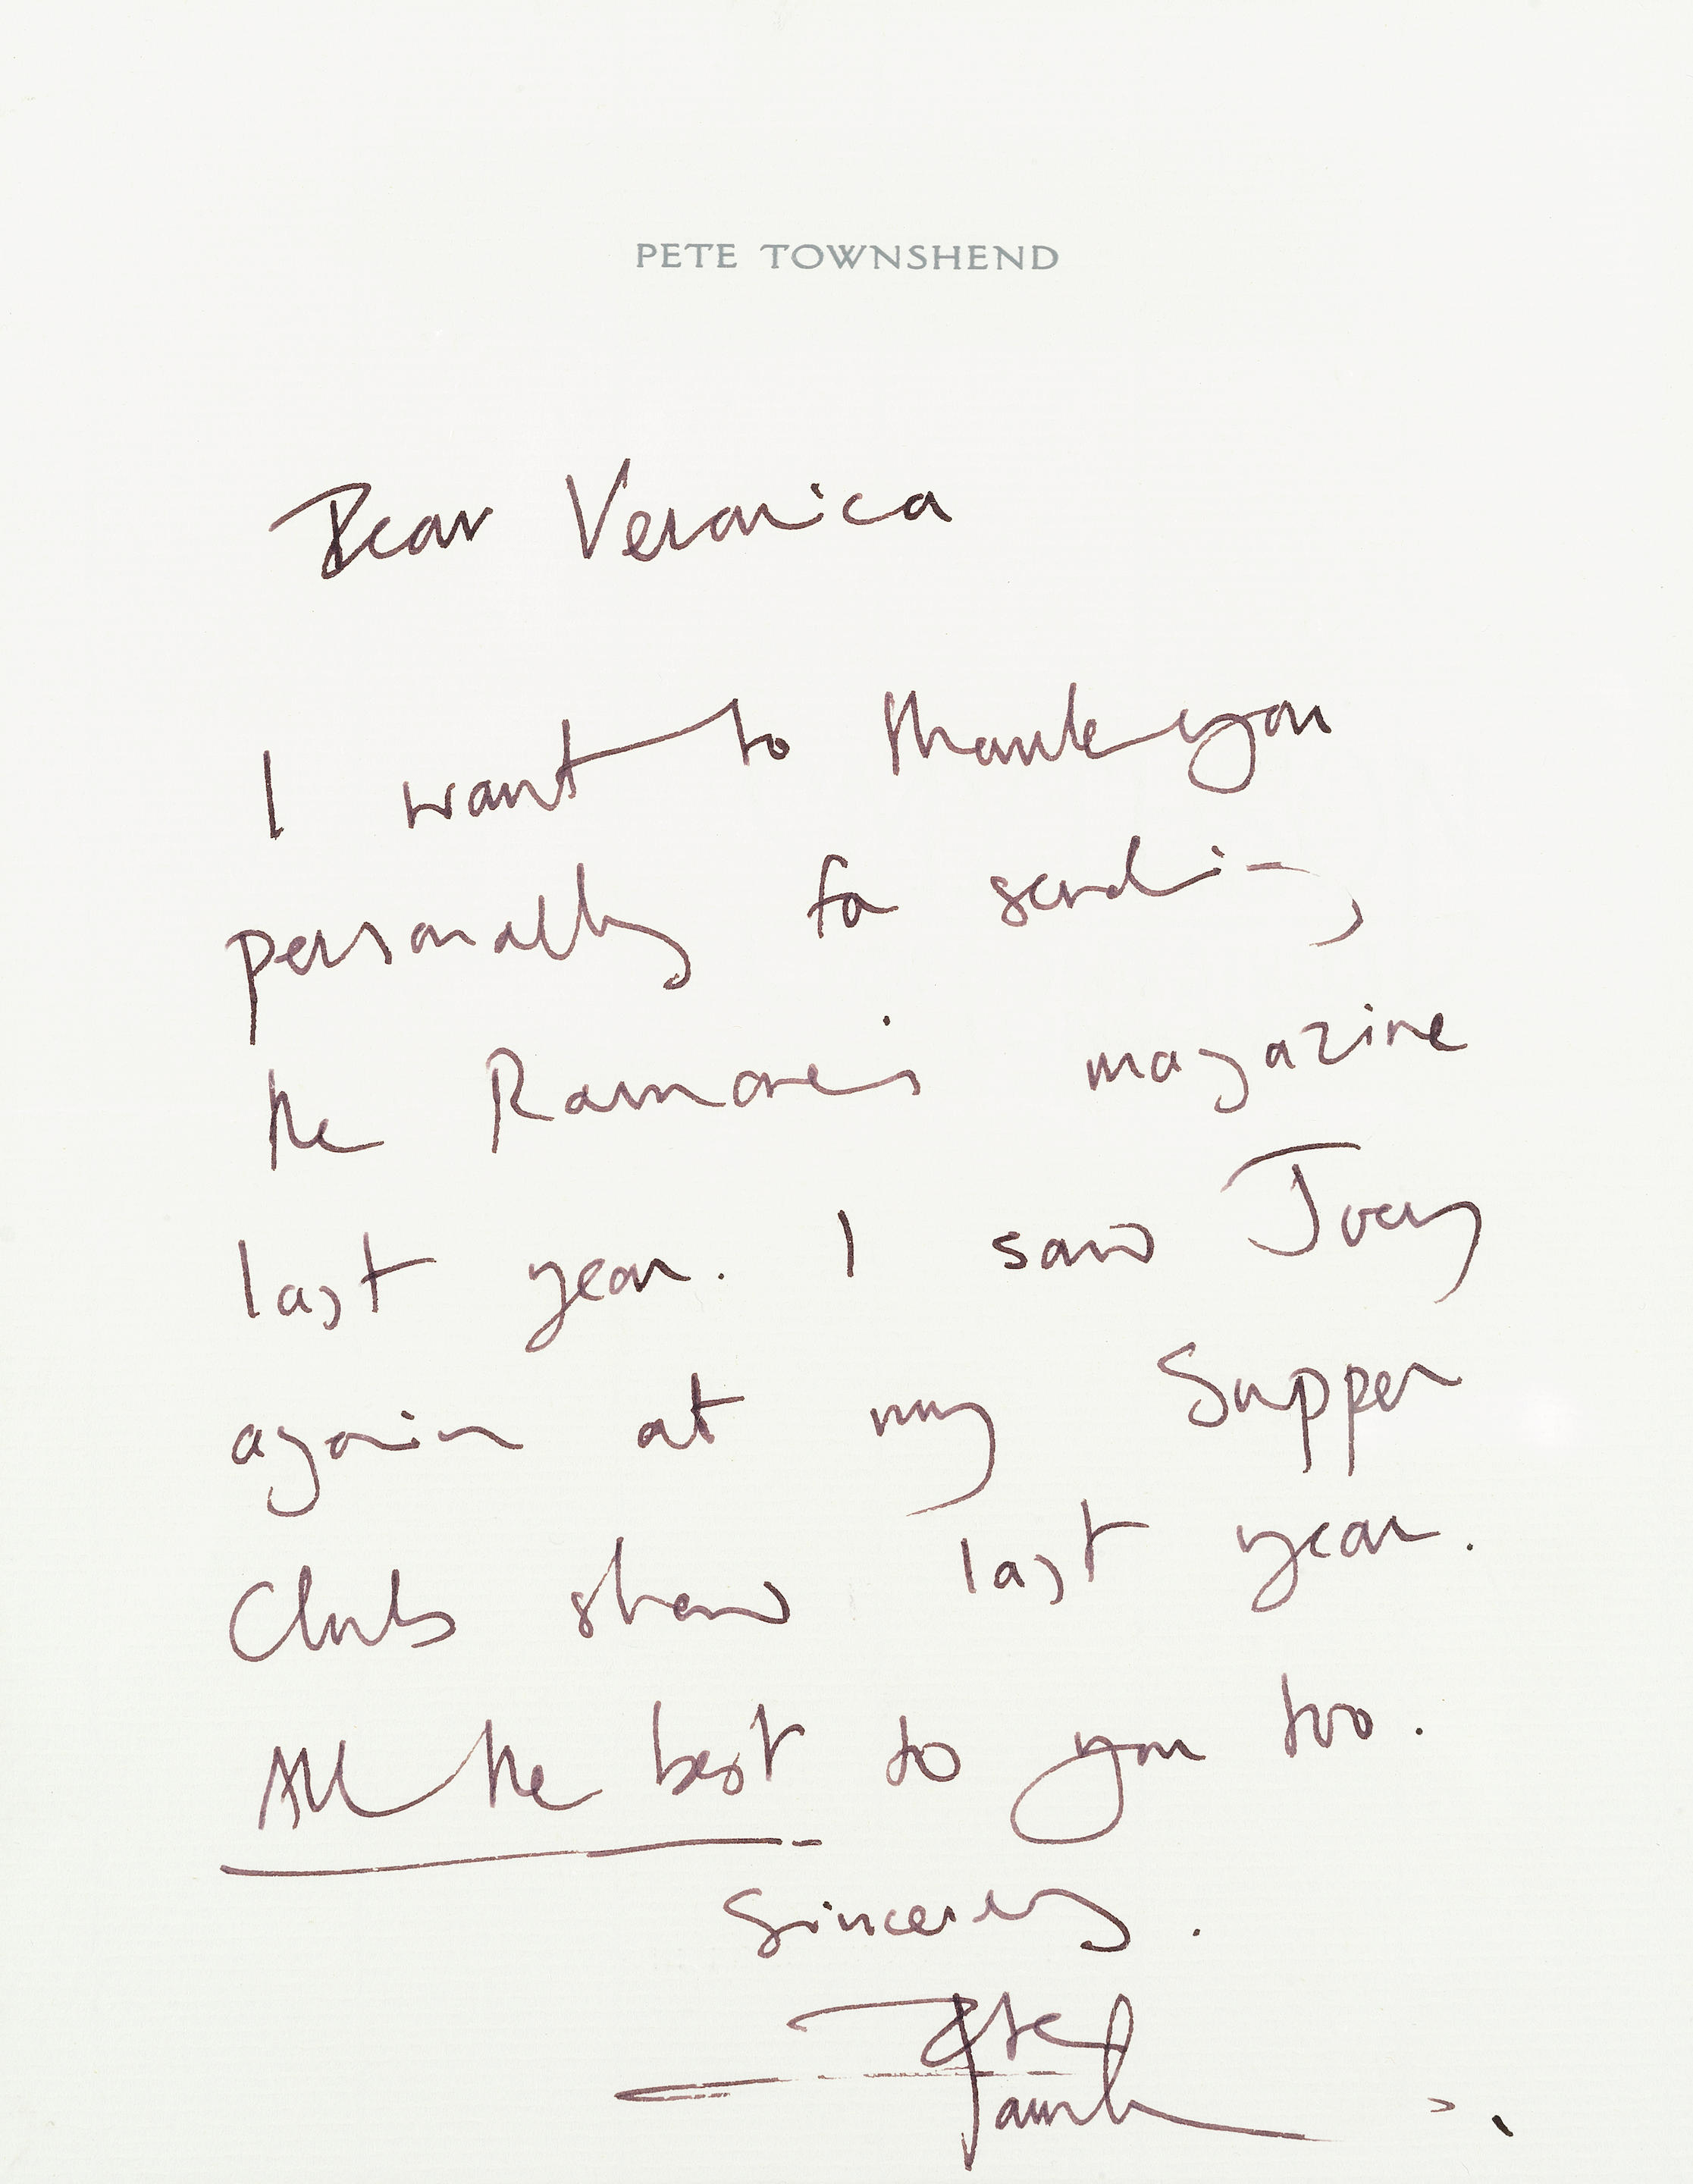 PETE TOWNSHEND
Dear Veronica
I want to thank you
personally for sending
the Ramone's magazine
last year. I saw Joey
again at my Supper
Club show last year.
All the best to you too.
Sincerely.
Pete